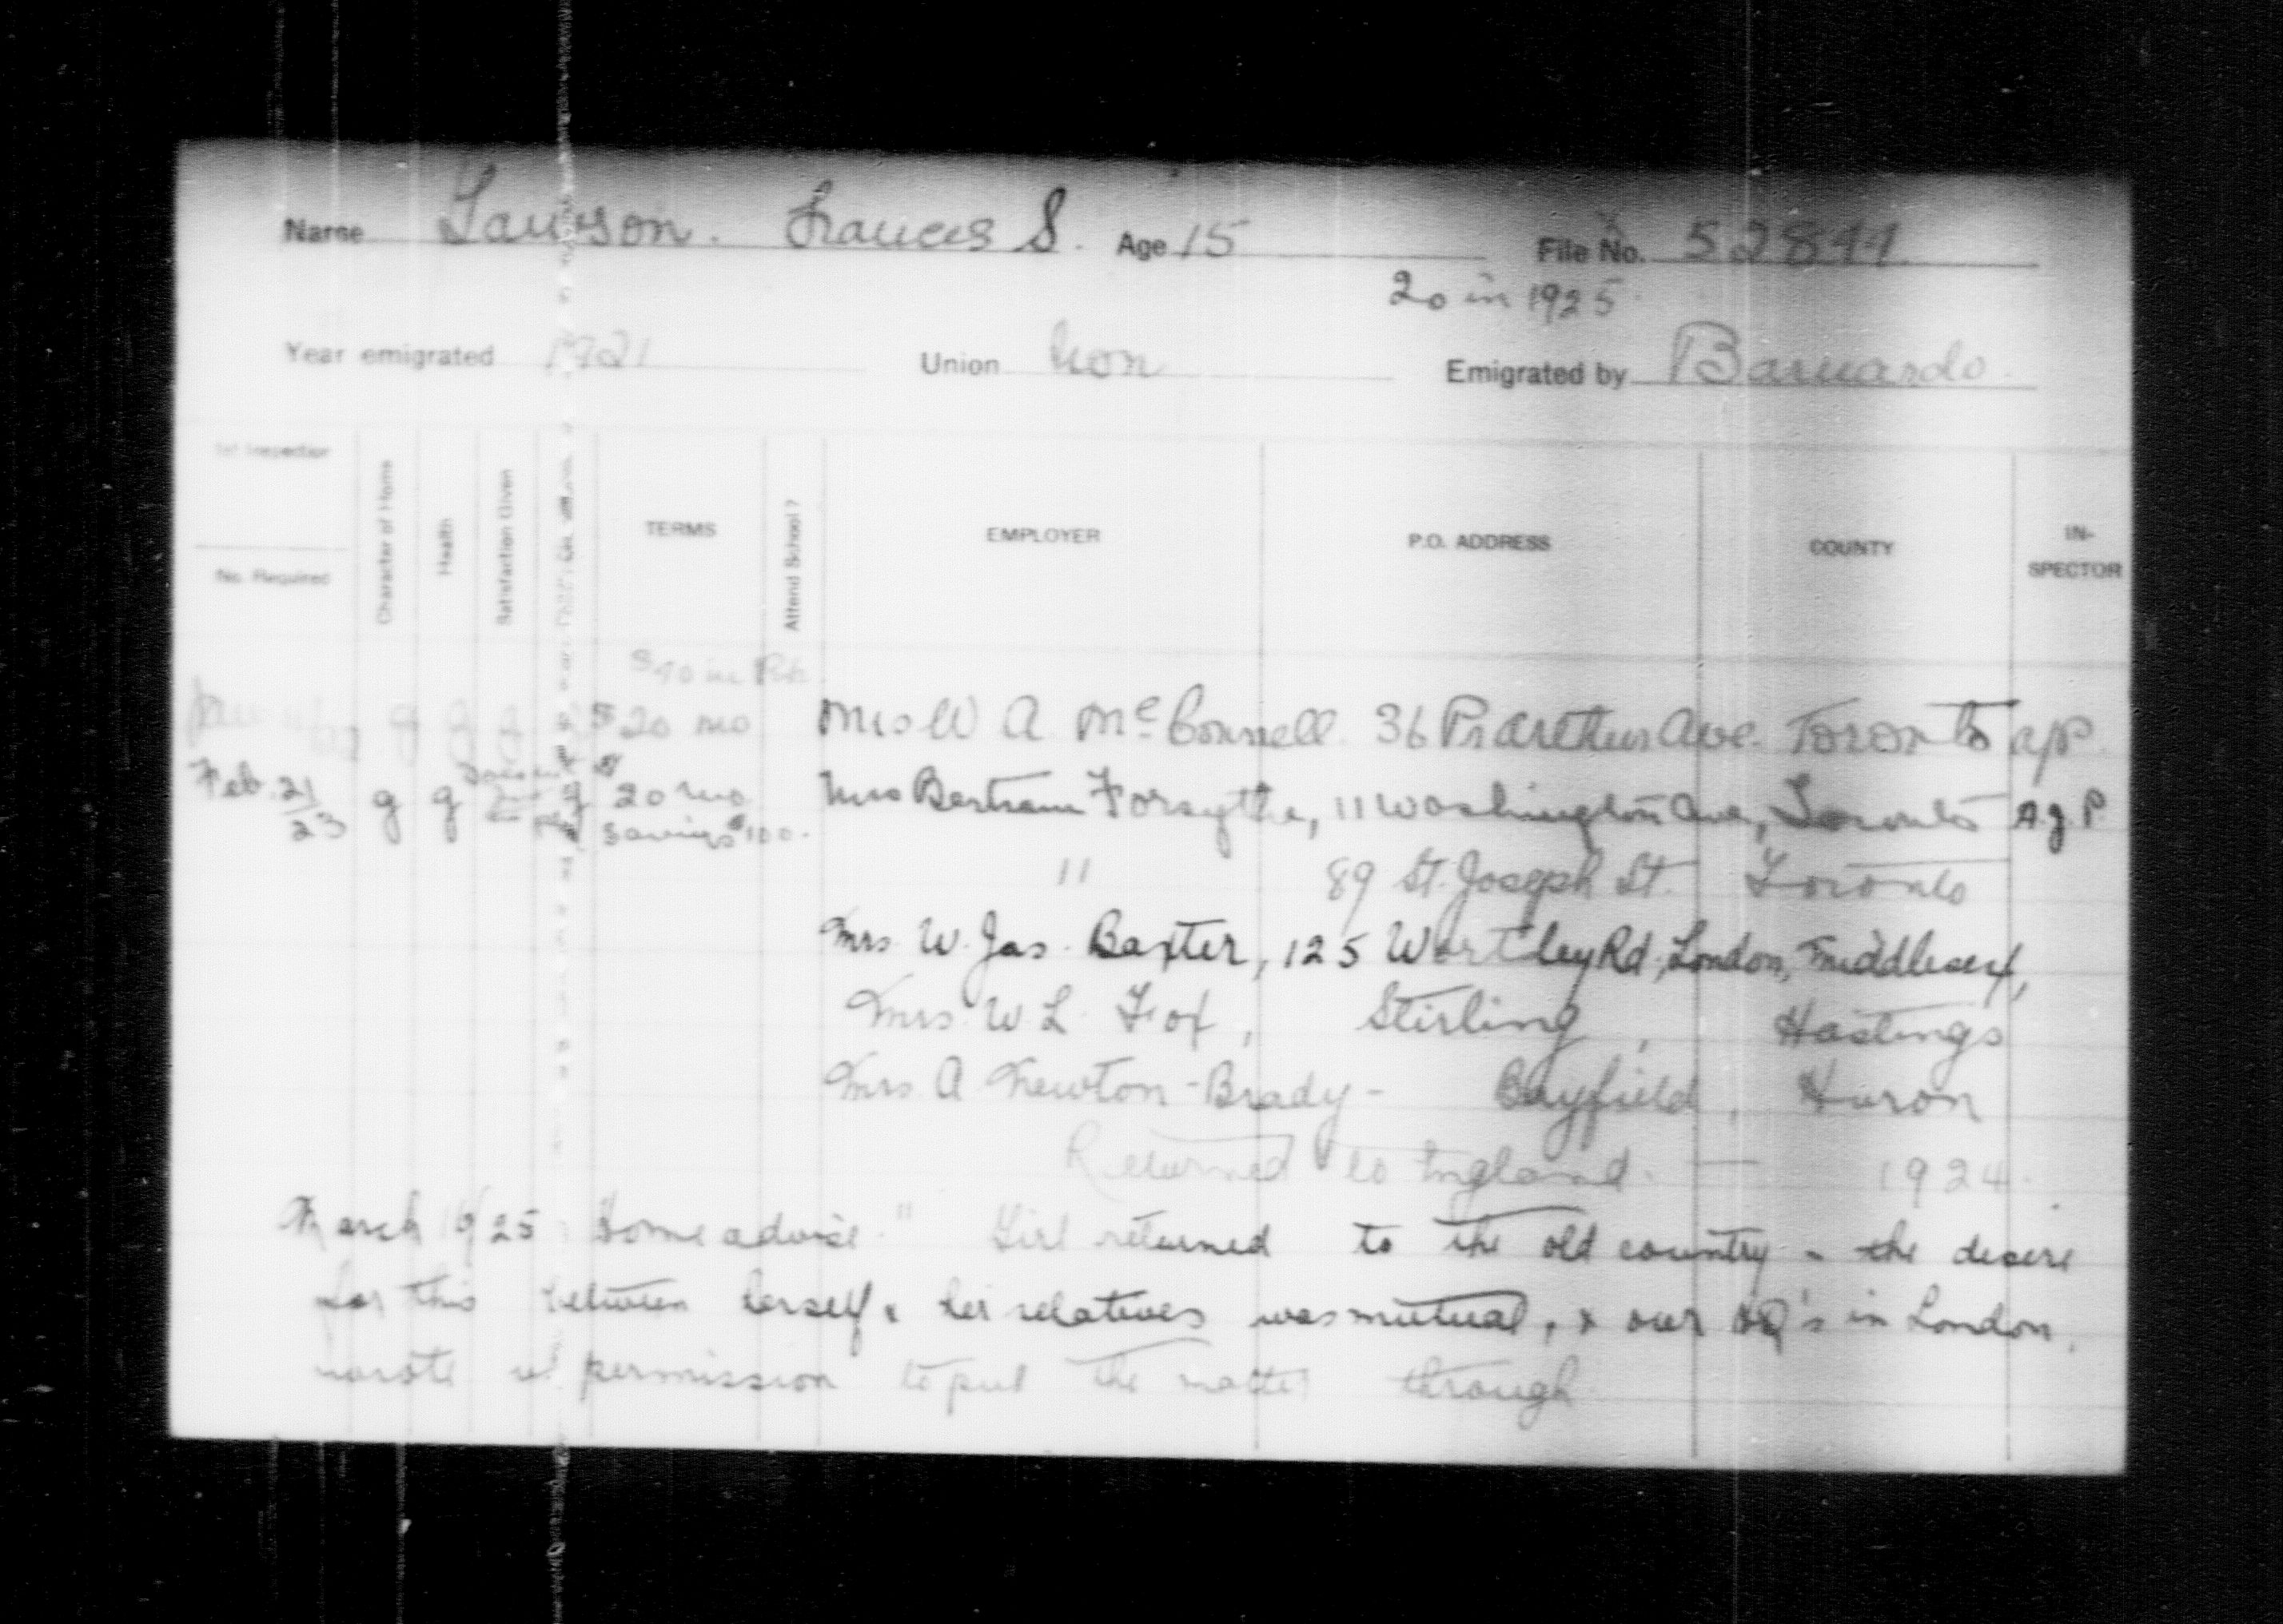 Name Lawson. Frances S. Age 15 File No. 52844
20 in 1925
Year emigrated 1921 Union non Emigrated by Barnardo
1st Inspection
No. Required
Character of Home
Health
Satisfaction Given
TERMS
Attend School?
EMPLOYER
P.O. ADDRESS
COUNTY
IN-
SPECTOR
g g g $20 mo Mrs W A McConnell. 36 Pr Arthur Ave. Toronto ap
Feb. 21/23 g g g $20 mo Mrs Bertram Forsythe, 11 Washington Ave, Toronto A.J.P
Savings $100.
" 89 St. Joseph St. Toronto
Mrs. W. Jas. Baxter, 125 Wortley Rd, London, Middlesex,
Mrs. W L. Fox, Stirling, Hastings
Mrs. A Newton-Brady- Bayfield, Huron
Returned to England. — 1924.
March 25 Home advise " Girl returned to the old country - the desire
for this between herself & her relatives was mutual, & our HQ's in London
wrote permission to put the matter through